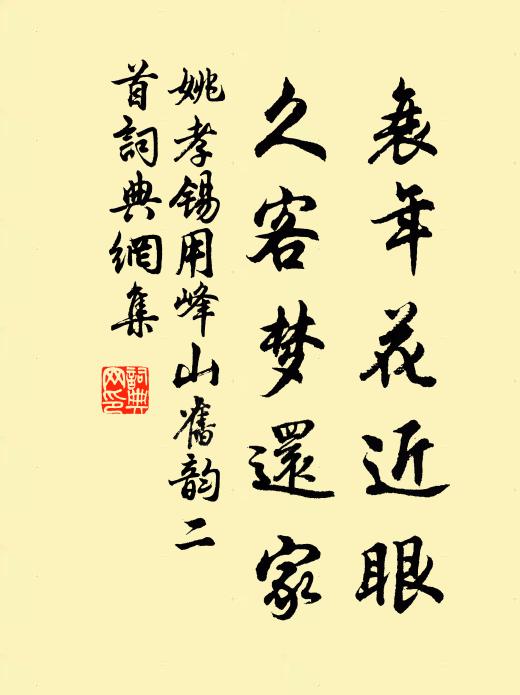 衰年花近眼
久客梦還家
姚孝锡用峰山舊韵二
首詞典網集
詞典网印